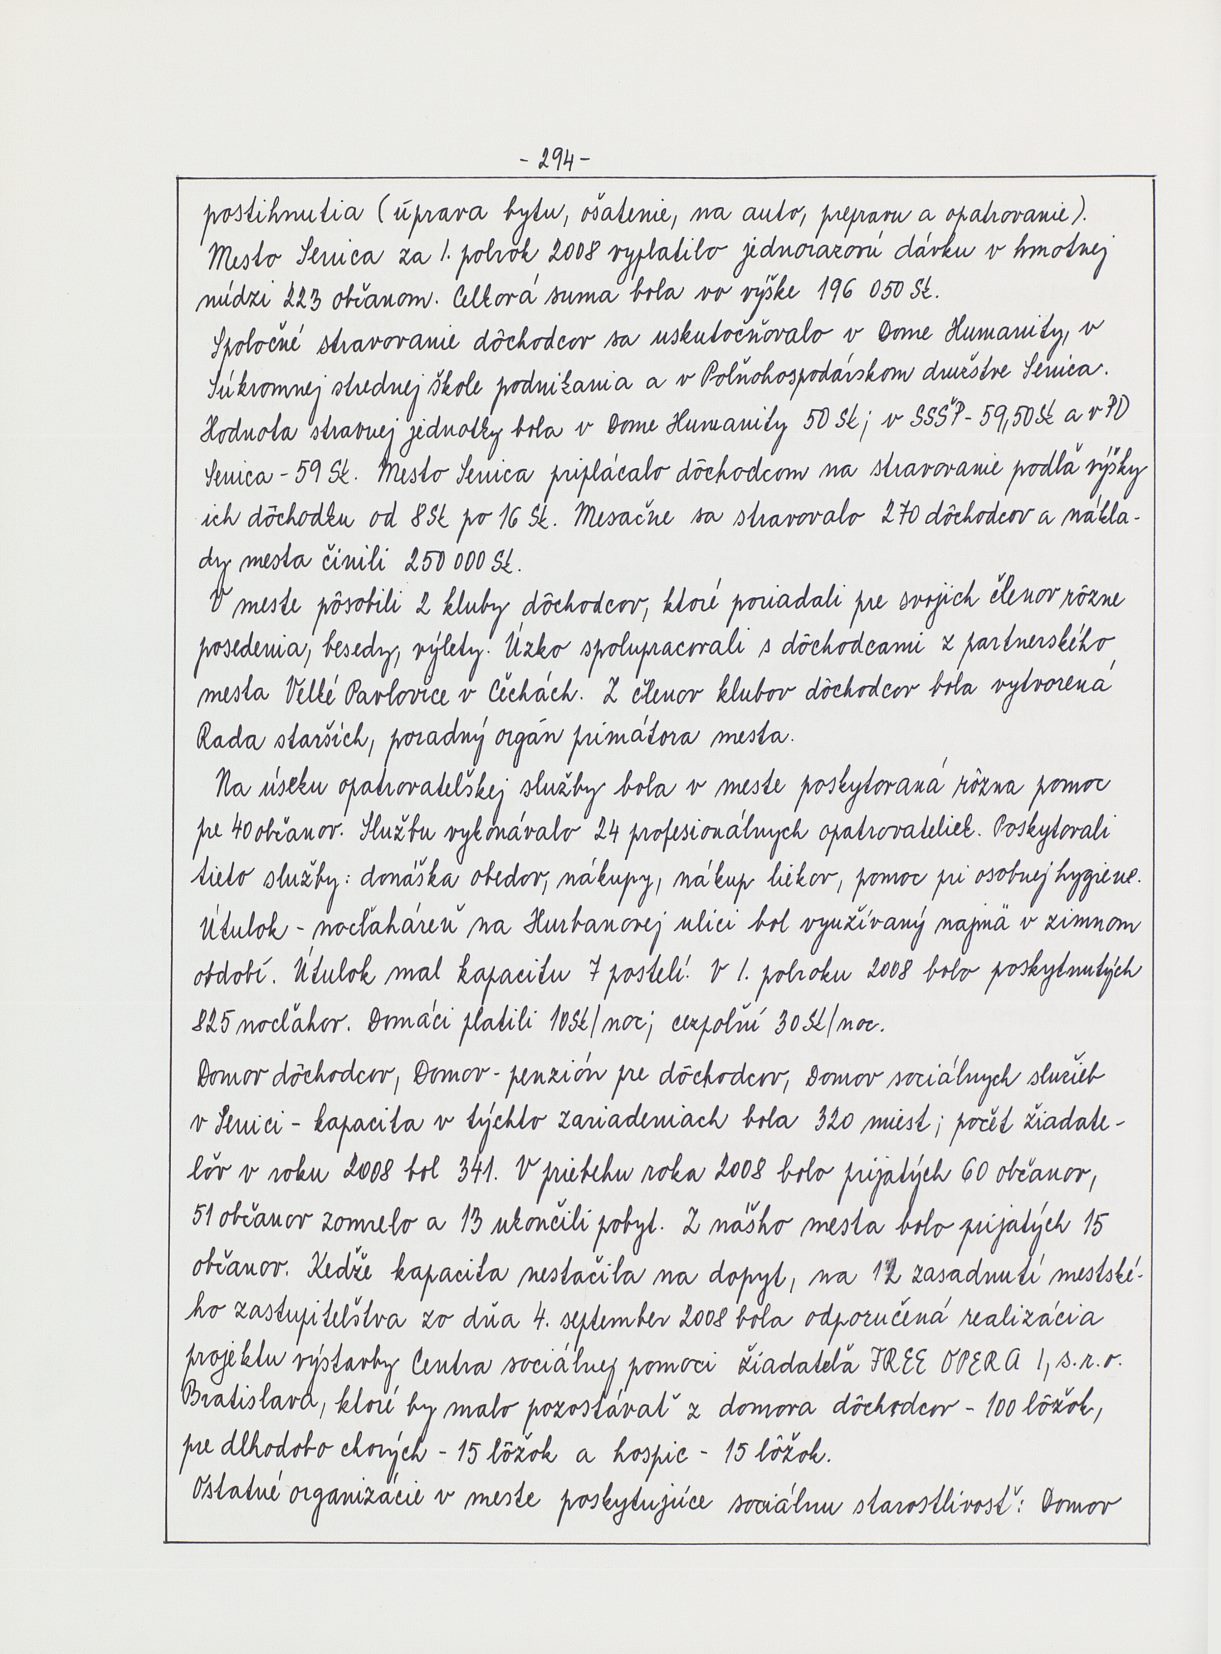 - 294 -
postihnutia (úprava bytu, ošatenie, na auto, prepravu a opatrovanie).
Mesto Senica za 1. polrok 2008 vyplatilo jednorazovú dávku v hmotnej
núdzi 223 občanom. Celková suma bola vo výške 196 050 Sk.
Spoločné stravovanie dôchodcov sa uskutočňovalo v Dome Humanity, v
Súkromnej strednej škole podnikania a v Poľnohospodárskom družstve Senica.
Hodnota stravnej jednotky bola v Dome Humanity 50 Sk; v SSŠP - 59,50 Sk a v PD
Senica - 59 Sk. Mesto Senica priplácalo dôchodcom na stravovanie podľa výšky
ich dôchodku od 8 Sk po 16 Sk. Mesačne sa stravovalo 270 dôchodcov a nákla-
dy mesta činili 250 000 Sk.
V meste pôsobili 2 kluby dôchodcov, ktoré poriadali pre svojich členov rôzne
posedenia, besedy, výlety. Úzko spolupracovali s dôchodcami z partnerského
mesta Velké Pavlovice v Čechách. Z členov klubov dôchodcov bola vytvorená
Rada starších, poradný orgán primátora mesta.
Na úseku opatrovateľskej služby bola v meste poskytovaná rôzna pomoc
pre 40 občanov. Službu vykonávalo 24 profesionálnych opatrovateliek. Poskytovali
tieto služby: donáška obedov, nákupy, nákup liekov, pomoc pri osobnej hygiene.
Útulok - nocľaháreň na Hurbanovej ulici bol využívaný najmä v zimnom
období. Útulok mal kapacitu 7 postelí. V 1. polroku 2008 bolo poskytnutých
825 nocľahov. Domáci platili 10 Sk/noc; cezpoľní 30 Sk/noc.
Domov dôchodcov, Domov - penzión pre dôchodcov, Domov sociálnych služieb
v Senici - kapacita v týchto zariadeniach bola 320 miest; počet žiadate-
ľov v roku 2008 bol 341. V priebehu roka 2008 bolo prijatých 60 občanov,
51 občanov zomrelo a 13 ukončili pobyt. Z nášho mesta bolo prijatých 15
občanov. Keďže kapacita nestačila na dopyt, na 12 zasadnutí mestské-
ho zastupiteľstva zo dňa 4. september 2008 bola odporučená realizácia
projektu výstavby Centra sociálnej pomoci žiadateľa FREE OPERA 1, s.r.o.
Bratislava, ktoré by malo pozostávať z domova dôchodcov - 100 lôžok,
pre dlhodobo chorých - 15 lôžok a hospic - 15 lôžok.
Ostatné organizácie v meste poskytujúce sociálnu starostlivosť: Domov